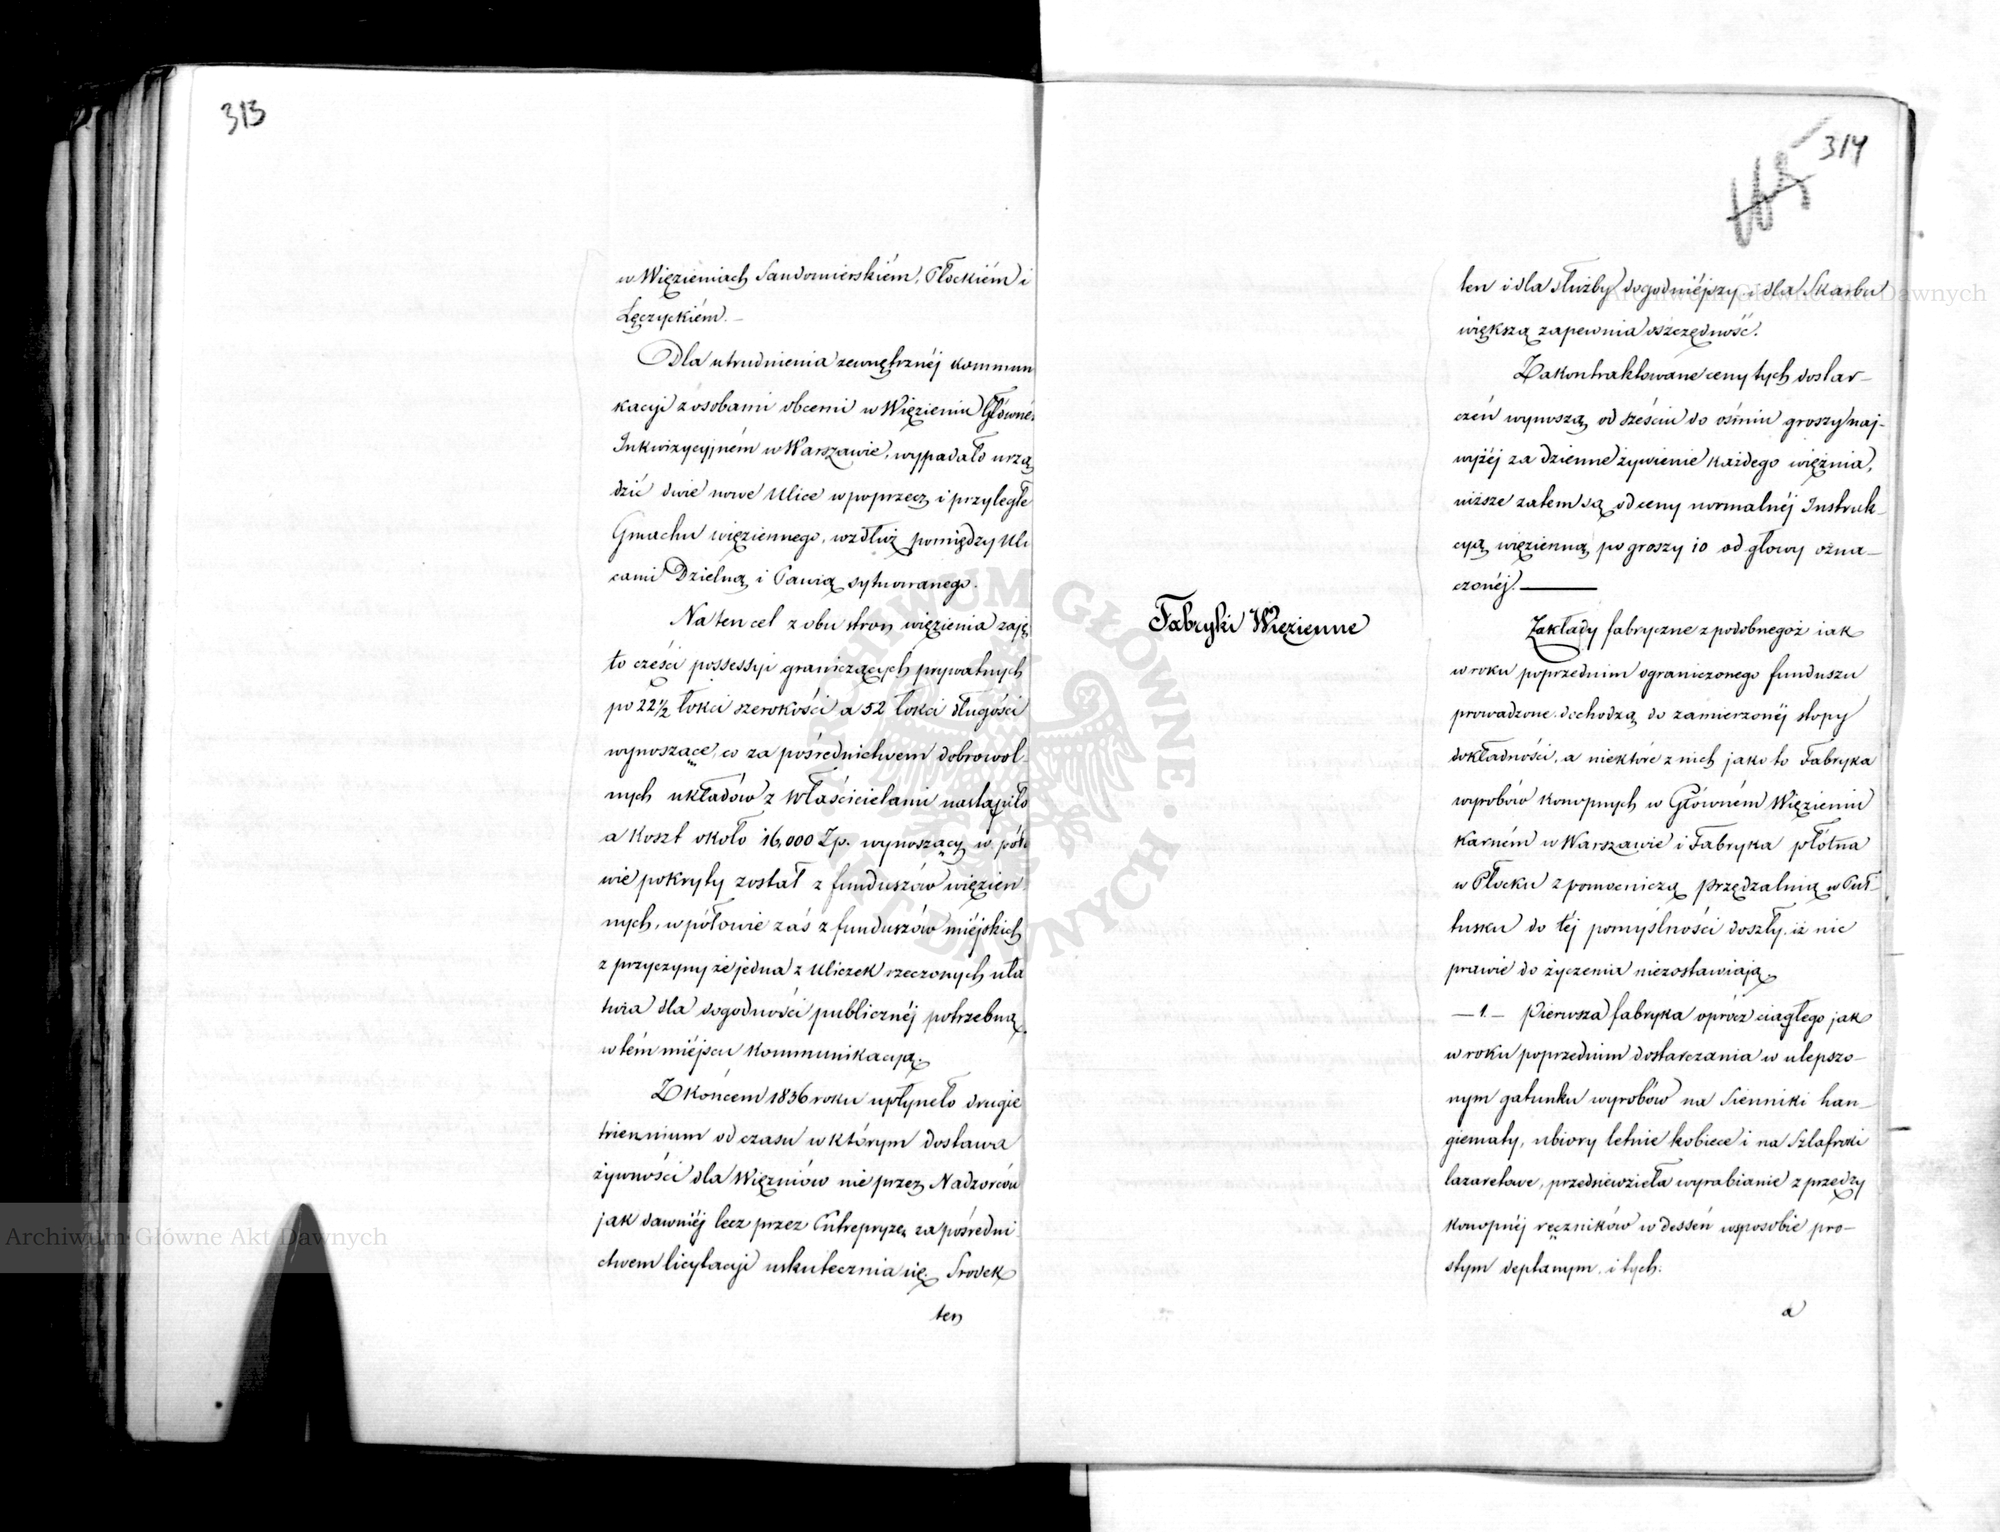 313
w Więzieniach Sandomierskiém, Płockiém i
Łęczyckiém.
Dla utrudnienia zewnętrznéj kommun
kacyi z osobami obcemi w Więzieniu Główné
Inkwizycyjném w Warszawie, wypadało urzą
dzić dwie nowe Ulice w poprzecz i przyległe
Gmachu więziennego, wzdłuż pomiędzy Uli
cami Dzielną i Pawią sytuowanego.
Na ten cel z obu stron więzienia zaję
to części possessyi graniczących prywatnych
po 22½ łokci szerokości a 52 łokci długości
wynoszące, co za pośrednictwem dobrowol-
nych układów z Właścicielami nastąpiło
a koszt około 16,000 Zp. wynoszący w poło
wie pokryty został z funduszów więzien
nych, w połowie zaś z funduszów miéjskich
z przyczyny że jedna z Uliczek rzeczonych uła
twia dla dogodności publicznéj potrzebną
w tém miéjscu kommunikacyą.
Z końcem 1836 roku upłynęło drugie
triennium od czasu w którym dostawa
żywności dla Więzniów nie przez Nadzorców
jak dawniéj lecz przez Entrepryzę za pośredni
ctwem licytacyi uskutecznia się. Srodek
ten
314
ten i dla służby dogodniéjszy i dla Skarbu
większą zapewnia oszczędność.
Zakontraktowane ceny tych dostar-
czeń wynoszą od sześciu do ośmiu groszy naj-
wyżéj za dzienne żywienie każdego więźnia,
niższe zatem są od ceny normalnéj Instruk-
cyą więzienną po groszy 10 od głowy ozna-
czonéj.
Fabryki Więzienne
Zakłady fabryczne z podobnegoż iak
w roku poprzednim ograniczonego funduszu
prowadzone dochodzą do zamierzonéj stopy
dokładności, a niektóre z nich jako to Fabryka
wyrobów konopnych w Głowném Więzieniu
Karném w Warszawie i Fabryka płótna
w Płocku z pomocniczą przędzalnią w Puł-
tusku do téj pomyślności doszły, iż nic
prawie do życzenia niezostawiają.
— 1. — Pierwsza fabryka oprócz ciągłego jak
w roku poprzednim dostarczania w ulepszo-
nym gatunku wyrobów na Sienniki han-
giematy, ubiory letnie kobiece i na Szlafroki
lazaretowe, przedniewzieła wyrabianie z przędzy
konopnéj ręczników w desseń wsposobie pro-
stym deptanym, i tych.
a
Archiwum Główne Akt Dawnych
Archiwum Główne Akt Dawnych
ARCHIWUM GŁÓWNE · AKT DAWNYCH ·